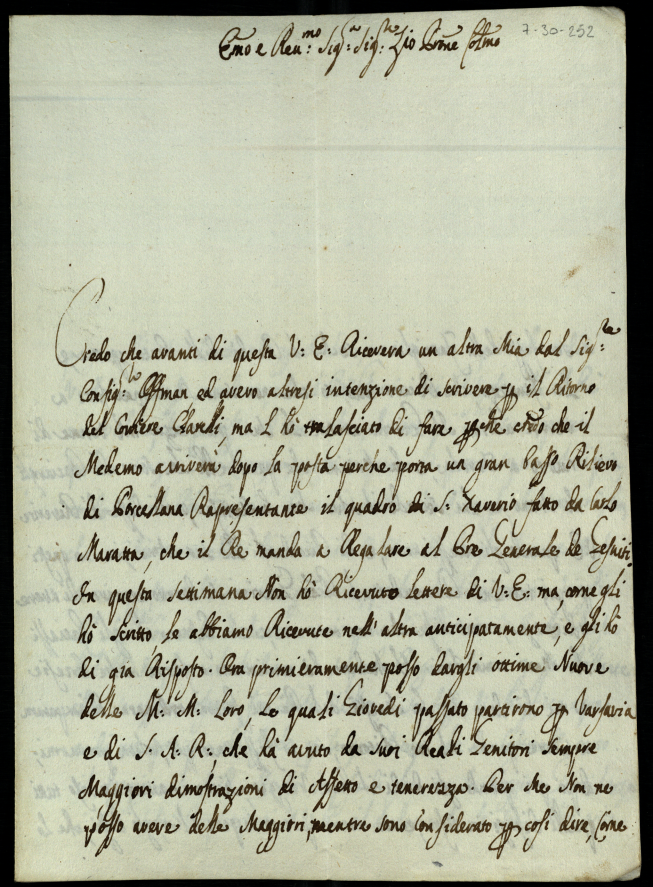 7-30-252
Emo e Reu:mo Sig:re Sig:re Zio Prone Colmo
Credo che avanti di questa V: E: Riceverà un altra Mia dal Sig:re
Consig:re Offman ed avevo altresi intenzione di scrivere p il Ritorno
del Corriere, ma l hò tralasciato di fare pche credo che il
Medemo arriverà dopo la posta perche porta un gran basso Rilievo
di Porcellana Rapresentante il quadro di S: Xaverio fatto da Carlo
Maratta, che il Re manda a Regalare al Pre Generale de Gesuiti.
In questa settimana Non hò Ricevuto lettere di V: E: ma, come gli
hò scritto, le abbiamo Ricevute nell' altra anticipatamente, e gli hò
di gia Risposto. Ora primieramente posso dargli ottime Nuove
delle M: M: Loro, le quali Giovedi passato partirono p Varsavia
e di S: A: R:, che hà avuto da suoi Reali Genitori sempre
Maggiori dimostrazioni di Affetto e tenerezza. Per me Non ne
posso avere delle Maggiori, mentre sono Considerato p cosi dire, Come